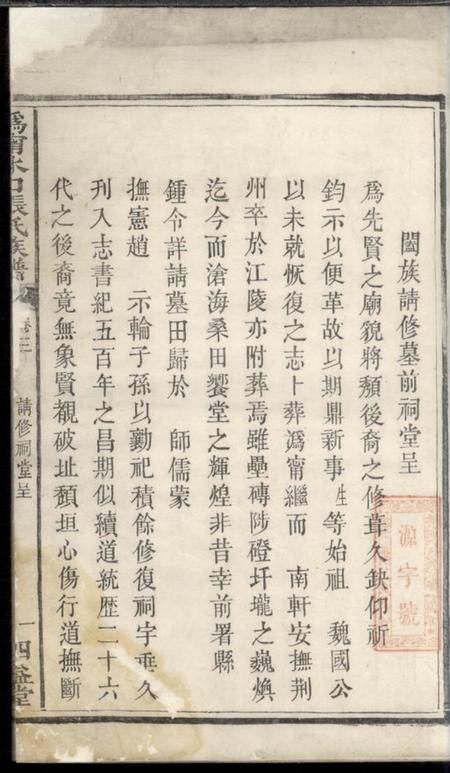 闔族請修墓前祠堂呈
為先賢之廟貌將頽後裔之修葺久缺仰祈
鈞示以便革故以期鼎新事生等始祖 魏國公
以未就恢復之志卜葬溈甯繼而 南軒安撫荆
州卒於江陵亦附葬焉雖壘磚陟磴圩壠之巍煥
迄今而滄海桑田饗堂之輝煌非昔幸前署縣
鍾令詳請墓田歸於 師儒蒙
撫憲趙 示輪子孫以勤祀積餘修復祠宇垂久
刊入志書紀五百年之昌期似續道統歷二十六
代之後裔竟無象賢覩破址頽垣心傷行道撫斷
為甯水口張氏族譜
卷三
請修祠堂呈
一
四益堂
源字號